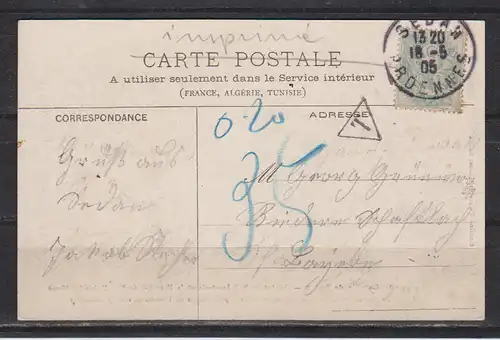 imprimé
CARTE POSTALE
A utiliser seulement dans le Service intérieur
(FRANCE, ALGÉRIE, TUNISIE)
SEDAN
13 20
18 -5
05
ARDENNES
T
CORRESPONDANCE
ADRESSE
0.20
35
Gruß aus
Sedan
Jakob
M Georg
Schaftlach
Bayern